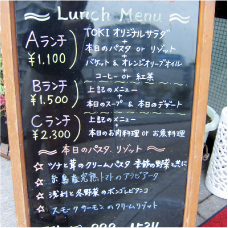 Lunch Menu
Aランチ ¥1.100
TOKI オリジナルサラダ
+
本日のパスタ or リゾット
+
バゲット & オレンジオリーブオイル
+
コーヒー or 紅茶
Bランチ ¥1.500
上記のメニュー
+
本日のスープ & 本日のデザート
Cランチ ¥2.300
上記のメニュー
+
本日のお肉料理 or お魚料理
〜本日のパスタ、リゾット〜
☆ ツナと茸のクリームパスタ 季節の野菜と共に
☆ 糸島産完熟トマトのアラビアータ
☆ 浅利と冬野菜のボンゴレビアンコ
☆ スモークサーモンのクリームリゾット